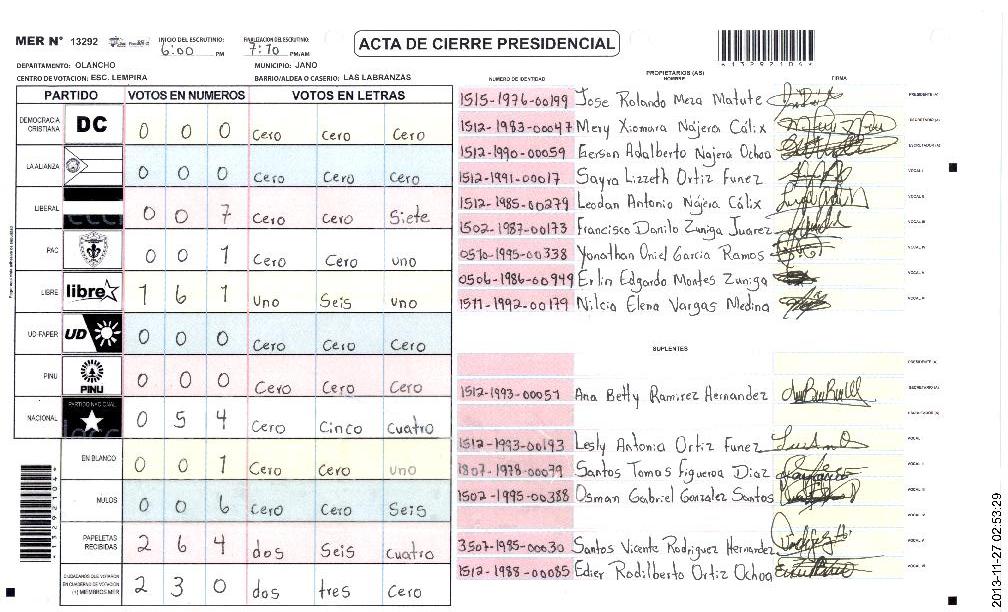 MER N° 13292 INICIO DEL ESCRUTINIO: 6:00 PM FINALIZACION DEL ESCRUTINIO: 7:10 PM/AM
ACTA DE CIERRE PRESIDENCIAL
*13292104*
DEPARTAMENTO: OLANCHO MUNICIPIO: JANO
CENTRO DE VOTACION: ESC. LEMPIRA BARRIO/ALDEA O CASERIO: LAS LABRANZAS
PARTIDO VOTOS EN NUMEROS VOTOS EN LETRAS
DEMOCRACIA CRISTIANA DC 0 0 0 Cero Cero Cero
LA ALIANZA 0 0 0 Cero Cero Cero
LIBERAL 0 0 7 Cero Cero Siete
PAC 0 0 1 Cero Cero uno
LIBRE libre 1 6 1 Uno Seis uno
UD-FAPER UD 0 0 0 Cero Cero Cero
PINU PINU 0 0 0 Cero Cero Cero
NACIONAL PARTIDO NACIONAL 0 5 4 Cero Cinco Cuatro
EN BLANCO 0 0 1 Cero Cero uno
NULOS 0 0 6 Cero Cero Seis
PAPELETAS RECIBIDAS 2 6 4 dos Seis Cuatro
CIUDADANOS QUE VOTARON EN CUADERNO DE VOTACION (+) MIEMBROS MER 2 3 0 dos tres Cero
PROPIETARIOS (AS)
NUMERO DE IDENTIDAD NOMBRE FIRMA
1515-1976-00199 Jose Rolando Meza Matute PRESIDENTE (A)
1512-1983-00047 Mery Xiomara Nájera Cálix SECRETARIO (A)
1512-1990-00059 Gerson Adalberto Najera Ochoa ESCRUTADOR (A)
1512-1991-00017 Sayra Lizzeth Ortiz Funez VOCAL I
1512-1985-00279 Leodan Antonio Nájera Cálix VOCAL II
1502-1987-00173 Francisco Danilo Zuniga Juarez VOCAL III
0510-1995-00338 Yonathan Oniel Garcia Ramos VOCAL IV
0506-1986-00949 Erlin Edgardo Montes Zuniga VOCAL V
1511-1992-00179 Nilcia Elena Vargas Medina VOCAL VI
SUPLENTES
PRESIDENTE (A)
1512-1993-00057 Ana Betty Ramirez Hernandez SECRETARIO (A)
ESCRUTADOR (A)
1512-1993-00193 Lesly Antonia Ortiz Funez VOCAL I
1807-1978-00079 Santos Tomas Figueroa Diaz VOCAL II
1502-1995-00388 Osman Gabriel Gonzalez Santos VOCAL III
VOCAL IV
3507-1985-00030 Santos Vicente Rodriguez Hernandez VOCAL V
1512-1988-00085 Edier Rodilberto Ortiz Ochoa VOCAL VI
2013-11-27 02:53:29